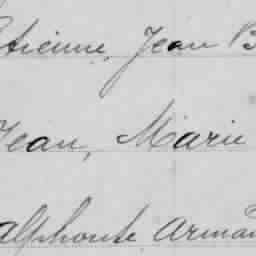 Etienne, Jean B
Jean, Marie
Alphonse Arman